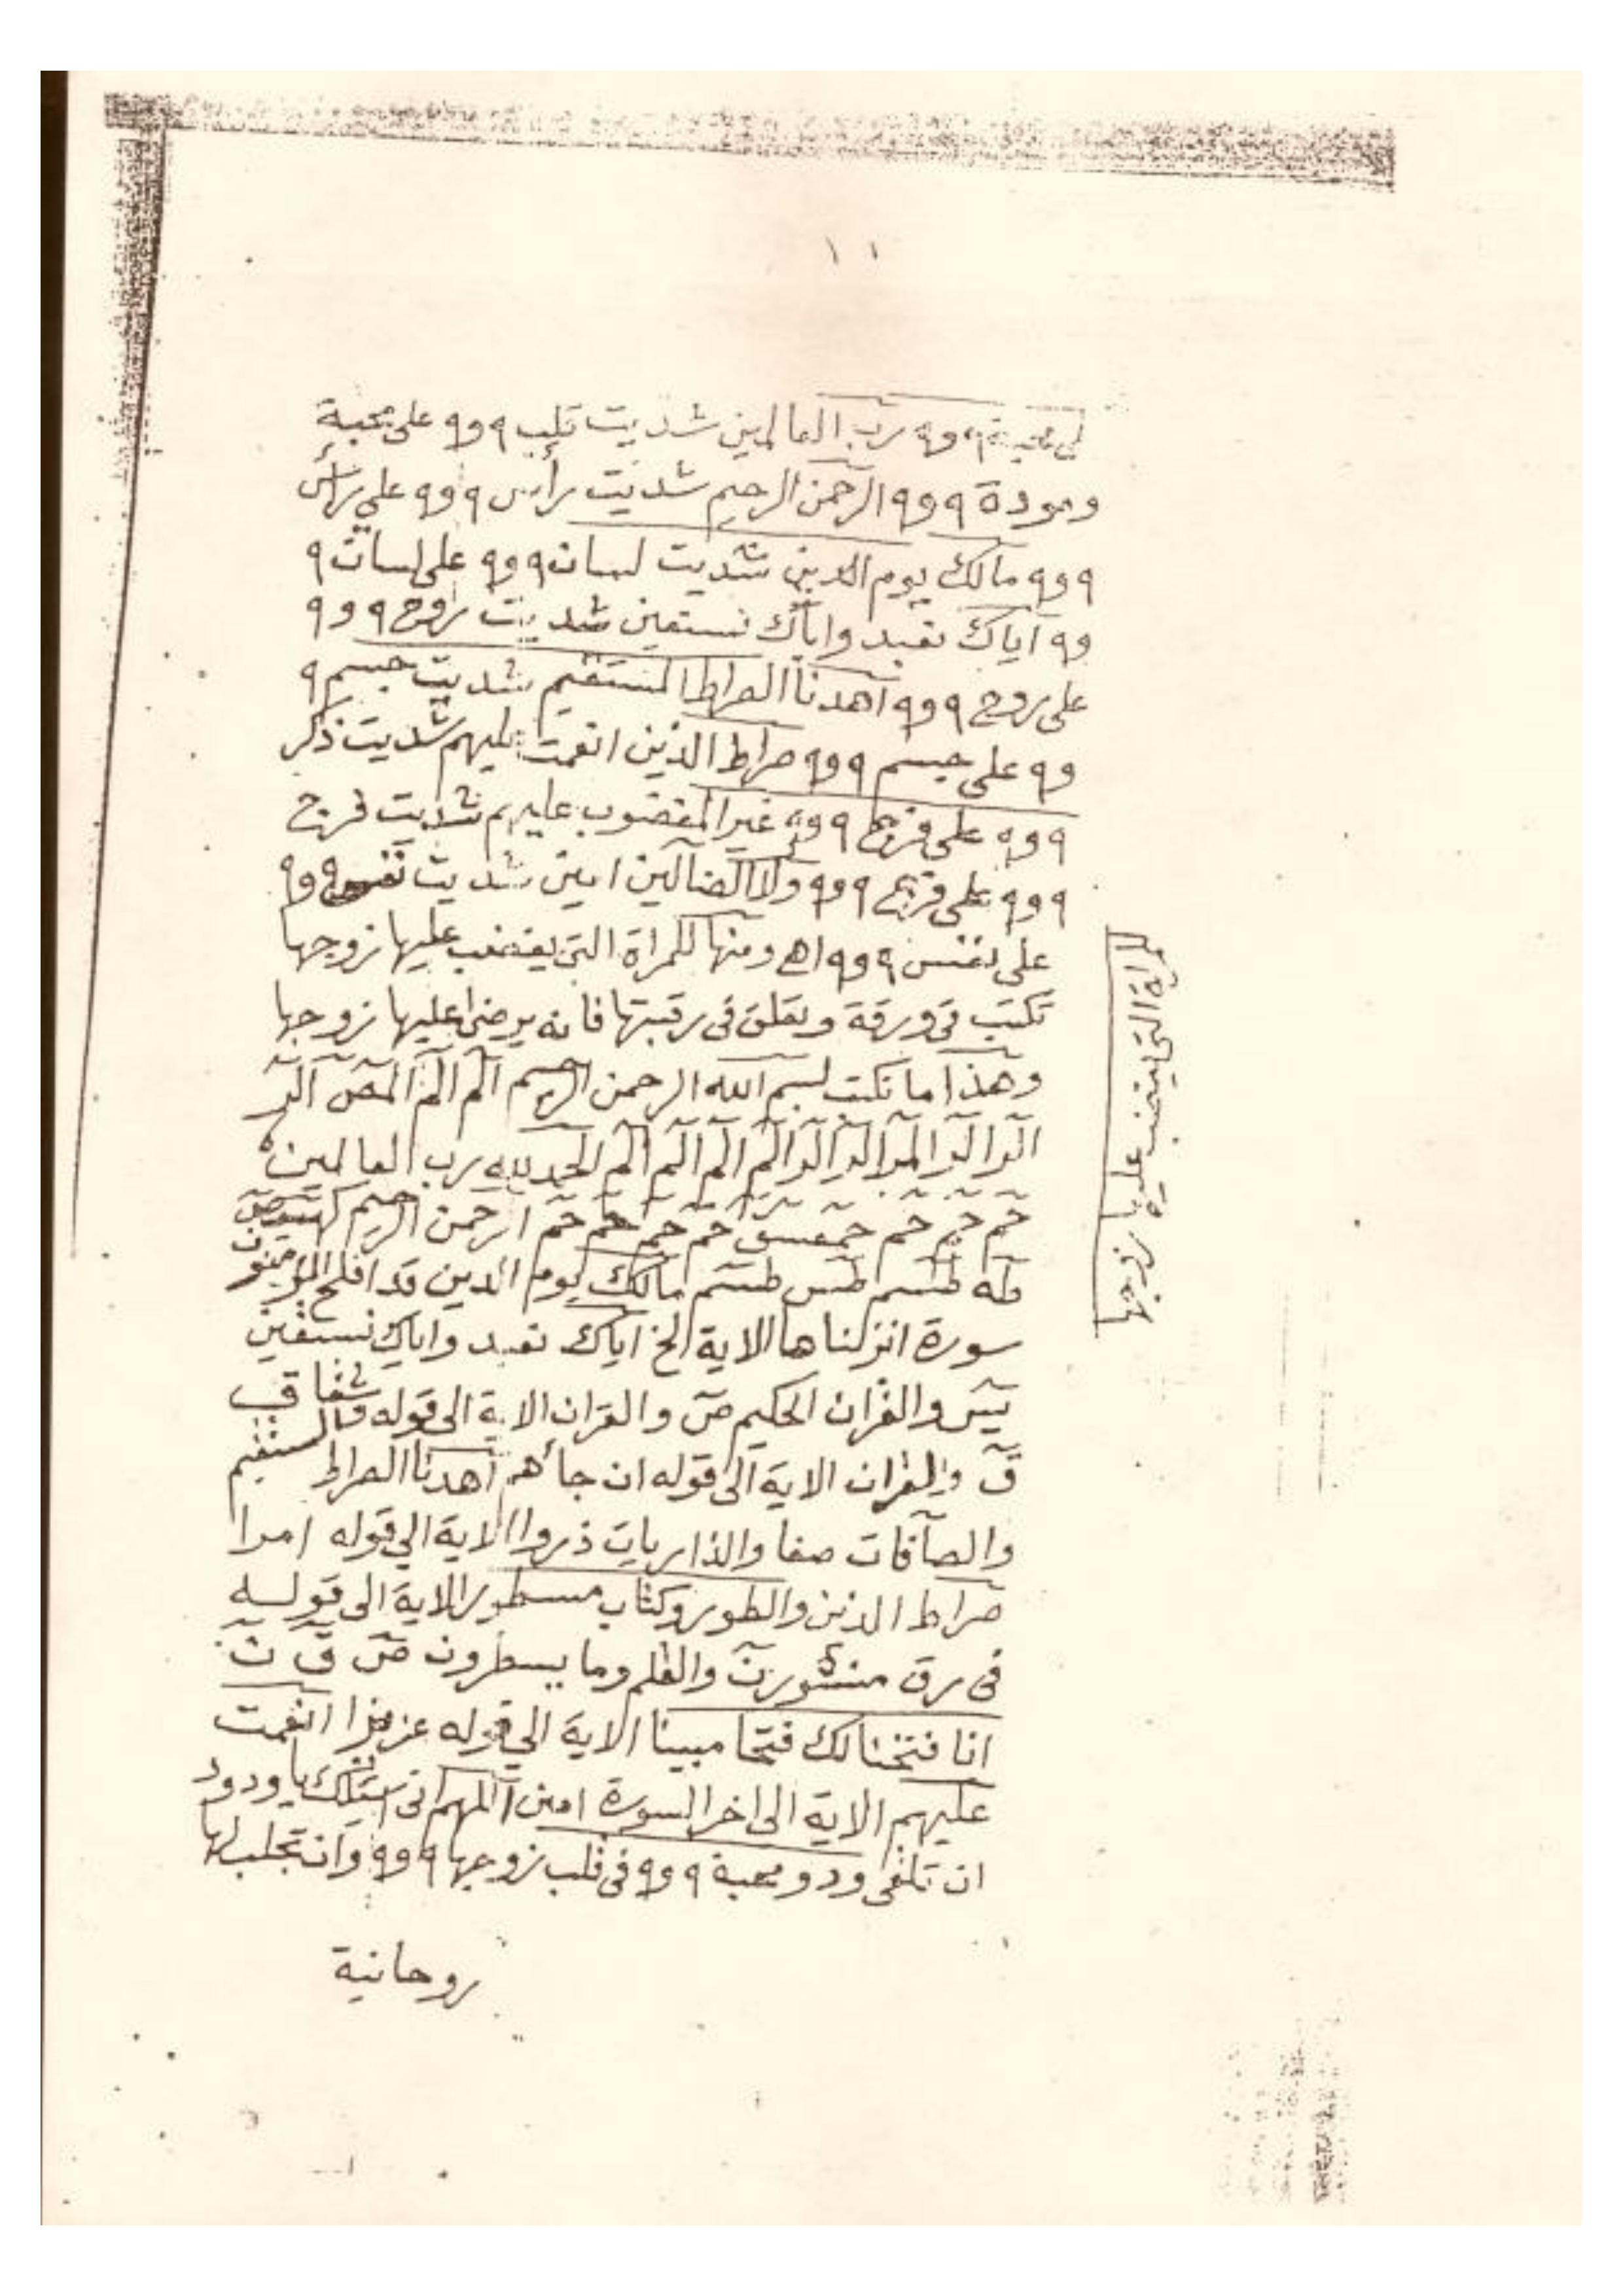 ١١
لى محبة ٩ و٩ رب العالمين شديت قلب ٩ و٩ على محبة
ومودة ٩ و٩ الرحمن الرحيم شديت رأس ٩ و٩ على رأس
٩ و٩ مالك يوم الدين شديت لسان ٩ و٩ على لسان ٩
و٩ اياك نعبد واياك نستعين شديت روح ٩ و٩
على روح ٩ و٩ اهدنا الصراط المستقيم شديت جسم ٩
و٩ على جسم ٩ و٩ صراط الذين انعمت عليهم شديت ذكر
٩ و٩ على فرج ٩ و٩ غير المغضوب عليهم شديت فرج
٩ و٩ على فرج ٩ و٩ ولا الضآلين امين شديت نفس ٩ و٩
على نفس ٩ و٩ اهـ ومنها للمراة التى يغضب عليها زوجها
تكتب فى ورقة وتعلق فى رقبتها فانه يرضى عليها زوجها
وهذا ما تكتب بسم الله الرحمن الرحيم الٓم الٓم الٓمٓصٓ الٓر
الٓر الٓر الٓمر الٓر الٓر الٓم الٓم الٓم الٓم الحمد لله رب العالمين
حٓم حٓم حٓم حٓمٓعٓسٓقٓ حٓم حٓم حٓم حٓم الرحمن الرحيم كٓهيعٓصٓ
طٓه طٓسٓم طٓسٓ طٓسٓم مالك يوم الدين قد افلح المؤمنون
سورة انزلناها الاية الخ اياك نعبد واياك نستعين
يٓسٓ والقران الحكيم صٓ والقران الاية الى قوله وشقاق
قٓ والقران الاية الى قوله ان جاءهم اهدنا الصراط المستقيم
والصآفات صفا والذاريات ذروا الاية الى قوله امرا
صراط الذين والطور وكتاب مسطور الاية الى قوله
فى رق منشور نٓ والقلم وما يسطرون صٓ قٓ نٓ
انا فتحنا لك فتحا مبينا الاية الى قوله عزيزا انعمت
عليهم الاية الى اخر السورة امين اللهم انى اسئلك يا ودود
ان تلقى ود ومحبة ٩ و٩ فى قلب زوجها ٩ و٩ وان تجلب لها
روحانية
للمراة التى يغضب عليها زوجها